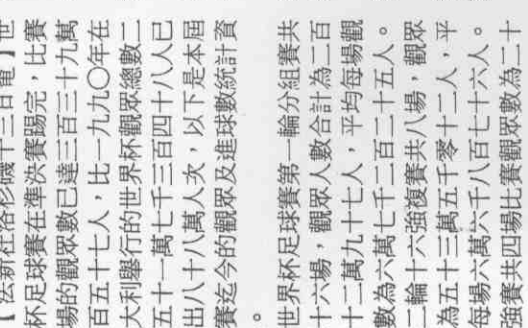 【法新社洛杉磯十三日電】世
杯足球賽在準決賽踢完，比賽
場的觀眾數已達三百三十九萬
百五十七人，比一九九〇年在
大利舉行的世界杯觀眾總數二
五十一萬七千三百四十八人已
出八十八萬人次，以下是本屆
賽迄今的觀眾及進球數統計資
。
世界杯足球賽第一輪分組賽共
十六場，觀眾人數合計為二百
十二萬九十七人，平均每場觀
數為六萬七千二百二十五人。
二輪十六強復賽共八場，觀眾
為五十三萬五千零十二人，平
每場六萬六千八百七十六人。
強賽共四場比賽觀眾數為二十